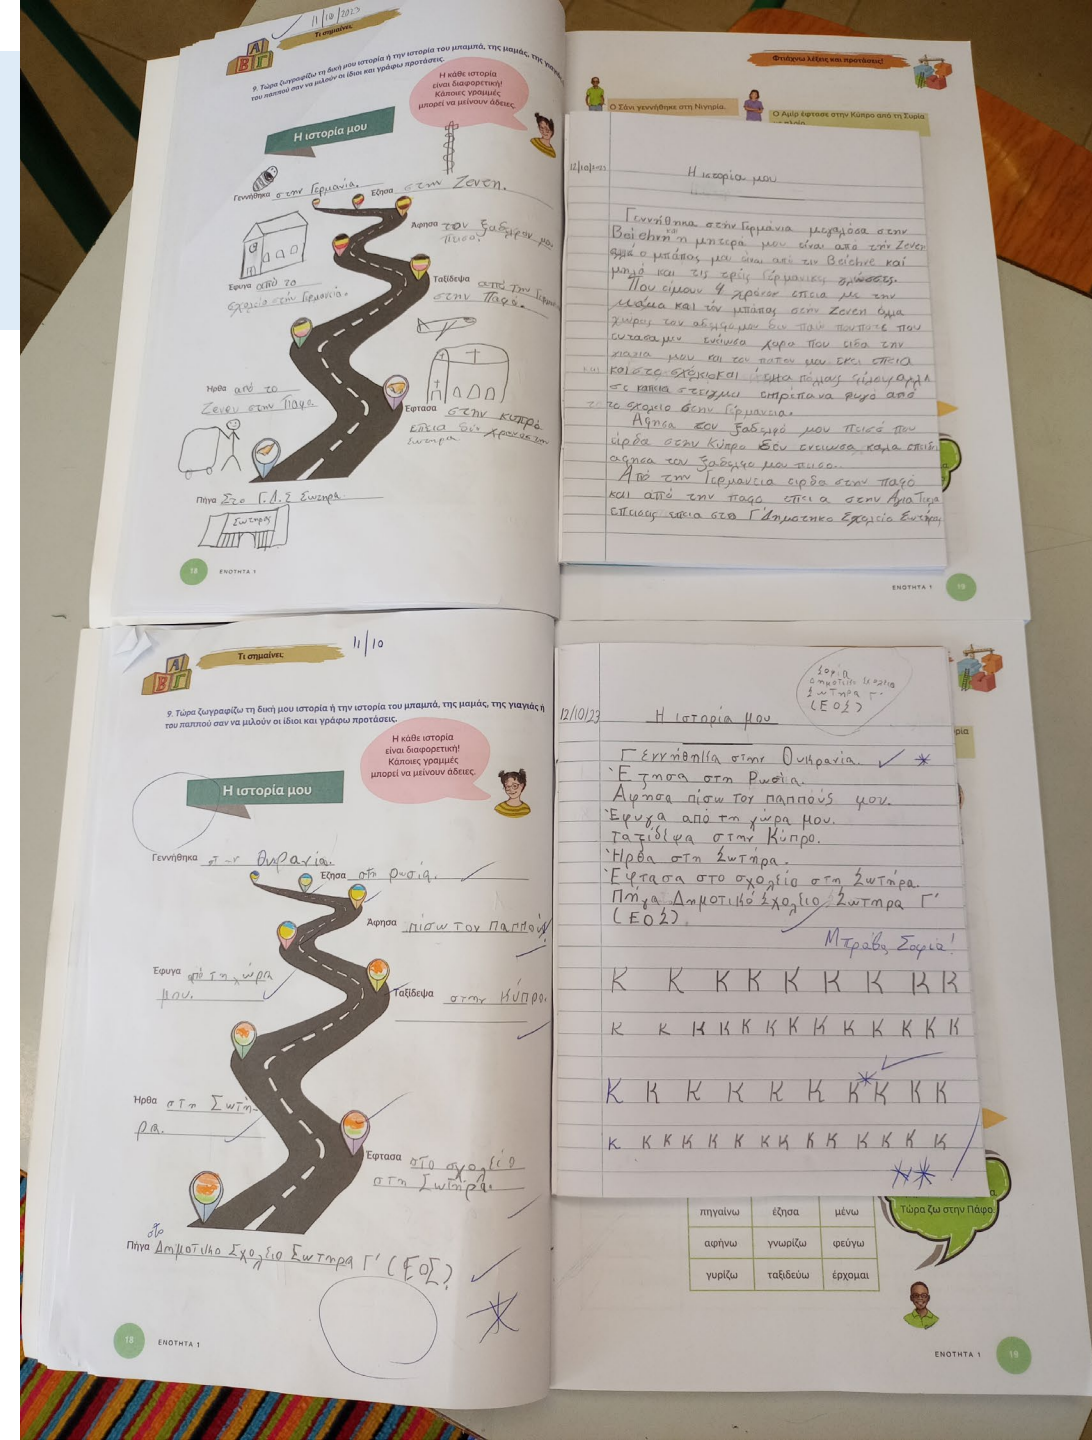 11/10/2023
Τι σημαίνει
9. Τώρα ζωγραφίζω τη δική μου ιστορία ή την ιστορία του μπαμπά, της μαμάς, της γιαγιάς
του παππού σαν να μιλούν οι ίδιοι και γράφω προτάσεις.
Η κάθε ιστορία
είναι διαφορετική!
Κάποιες γραμμές
μπορεί να μείνουν άδειες.
Η ιστορία μου
Γεννήθηκα στην Γερμανία.
Έζησα στην Zeven.
Άφησα τον ξαδερφο μου
πισο.
Έφυγα από το
σχολείο στην Γερμανία.
Ταξίδεψα από την
στην Παφο.
Ήρθα από το
Zeven στην Παφο
Έφτασα στην κυπρο
Πήγα Στο Γ.Δ.Σ Σωτηρα
Σωτηρας
18
ΕΝΟΤΗΤΑ 1
Φτιάχνω λέξεις και προτάσεις!
Ο Σάνι γεννήθηκε στη Νιγηρία.
Ο Αμίρ έφτασε στην Κύπρο από τη Συρία
12/10/2023
Η ιστορία μου
Γεννήθηκα στην Γερμάνια μεγαλόσα στην
η μητερα μου είναι από την Zeven
ο μπάπας μου είναι από τιν και
μηλό και τις τρείς Γερμανικες γλώσσες.
Που είμουν 4 χρόνον επεια με την
μάμα και τόν μπάπας στην Zeven
χωρίς τον αδελφομου δεν
χαρα που ειδα την
μου και τον παπου μου εκει επεια
και στο σχολιο και
επρεπα να φυγό από
το σχολειο στην Γερμανεια.
Αφησα τον ξαδελφό μου πεισό που
ειρδα στην Κύπρο δεν ενειωσα καλα επειδη
αφησα τον ξαδελφο μου πεισο.
Από την Γερμανεια ειρδα στην παφό
και από την παφο επει α στην Αγια Τεκλα
επεισης επεια στο Γ Δημοτηκο Σχολείο Σωτήρας
ΕΝΟΤΗΤΑ 1
19
Τι σημαίνει
11/10
9. Τώρα ζωγραφίζω τη δική μου ιστορία ή την ιστορία του μπαμπά, της μαμάς, της γιαγιάς ή
του παππού σαν να μιλούν οι ίδιοι και γράφω προτάσεις.
Η κάθε ιστορία
είναι διαφορετική!
Κάποιες γραμμές
μπορεί να μείνουν άδειες.
Η ιστορία μου
Γεννήθηκα
Έζησα στη ρωσία.
Άφησα πίσω τον παππούς
Έφυγα από τη χώρα
μου.
Ταξίδεψα στην Κύπρο.
Ήρθα στη Σωτή-
ρα.
Έφτασα στο σχολείο
στη Σωτήρα.
στο
Πήγα Δημοτικο Σχολειο Σωτηρα Γ' (ΕΟΣ)
18
ΕΝΟΤΗΤΑ 1
Σοφία
Δημοτικο σχολειο
Σωτηρα Γ'
(ΕΟΣ)
12/10/23
Η ιστορία μου
Γεννήθηκα στην Ουκρανία.
Έζησα στη Ρωσία.
Αφησα πίσω τον παππούς μου.
Έφυγα από τη χώρα μου.
Ταξίδεψα στην Κύπρο.
Ήρθα στη Σωτήρα.
Έφτασα στο σχολείο στη Σωτήρα.
Πήγα Δημοτικό Σχολείο Σωτηρα Γ'
(ΕΟΣ).
Μπράβο Σοφία!
Κ Κ Κ Κ Κ Κ Κ Κ Κ
Κ Κ Κ Κ Κ Κ Κ Κ Κ Κ Κ Κ Κ
Κ Κ Κ Κ Κ Κ Κ Κ Κ Κ
Κ Κ Κ Κ Κ Κ Κ Κ Κ Κ Κ Κ Κ Κ
Τώρα ζω στην Πάφο
πηγαίνω έζησα μένω
αφήνω γνωρίζω φεύγω
γυρίζω ταξιδεύω έρχομαι
ΕΝΟΤΗΤΑ 1
19